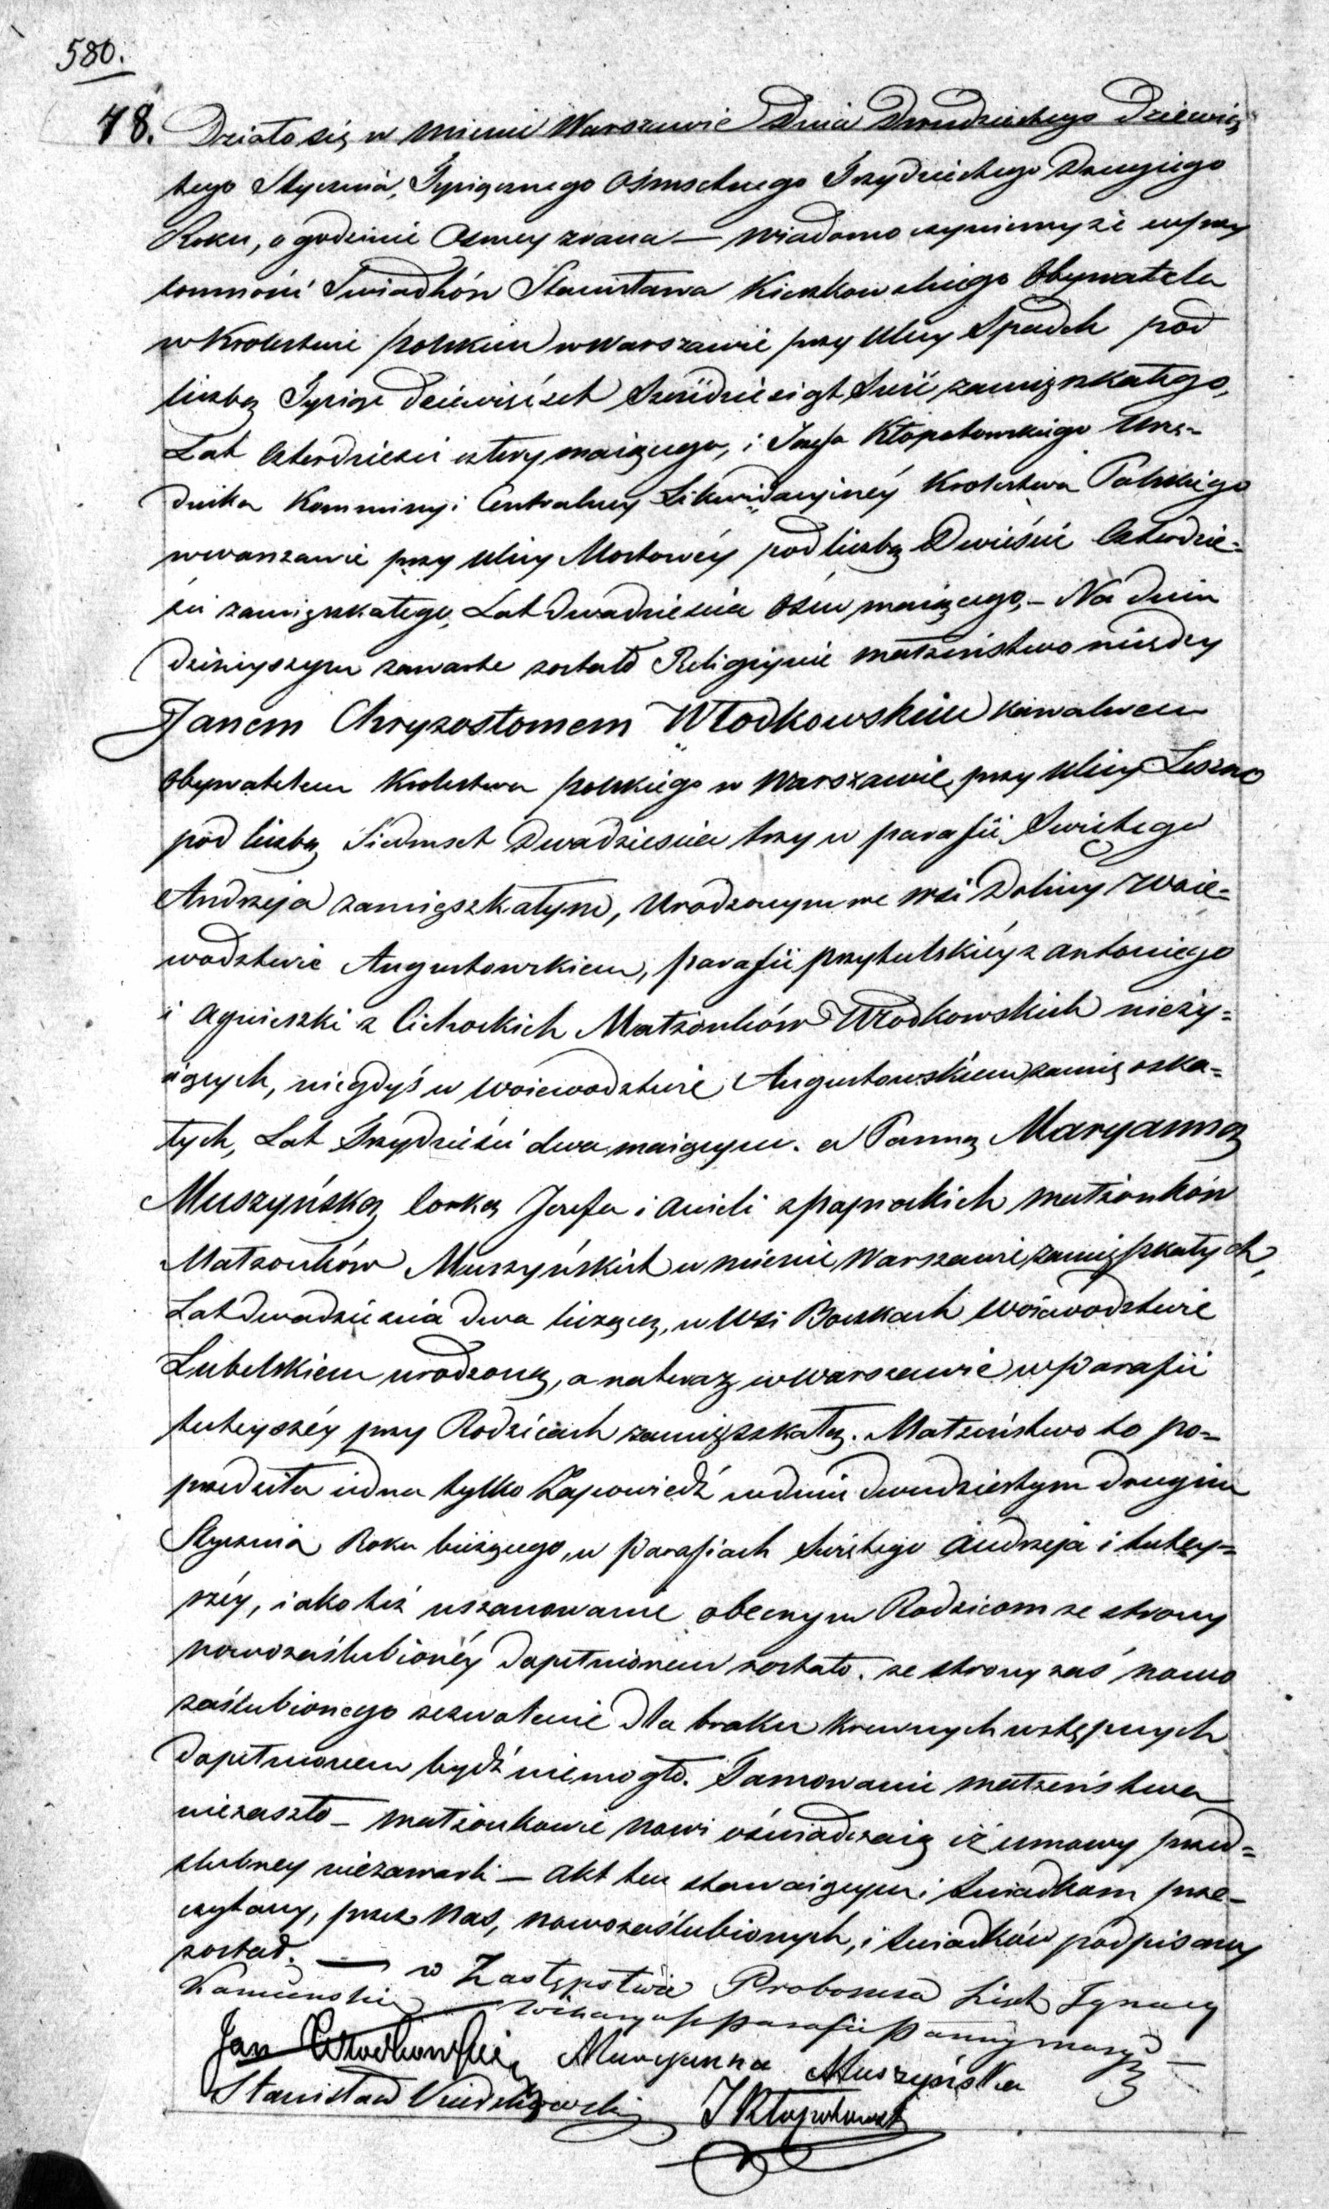 580.
78. Działo się w mieście Warszawie Dnia Dwudziestego Dziewią
tego Stycznia, Tysiącznego Ośmsetnego Trzydziestego Drugiego
Roku, o godzinie Osmey zrana — Wiadomo czyniemy że w przy
tomności Świadków Stanisława Obywatela
w Krolestwie polskim w Warszawie przy Ulicy pod
liczbą Tysiąc dziewięćset Sześćdziesiąt Sześć zamięszkałego,
Lat Czterdzieści cztery maiącego, i Józefa Kłopotowskiego Urzę-
dnika Kommissyi Centralney Likwidacyinéy Krolestwa Polskiego
w warszawie przy Ulicy Mostowéy pod liczbą Dwieście Czterdzie-
ści zamięszkałego, Lat dwadzieścia Ośm maiącego, — Na dniu
dzisieyszym zawarte zostało Religiynie małżeństwo między
Janem Chryzostomem Włodkowskim kawalerem
Obywatelem Krolestwa polskiego w Warszawie, przy Ulicy Leszno
pod liczbą Siedmset Dwadzieścia trzy w parafii Swiętego
Andrzeja zamięszkałym, Urodzonym we wsi Doliwy w Woie-
wodztwie Augustowskiem, parafii przytulskiéy z Antoniego
i Agnieszki z Cichockich Małżonków Włodkowskich nieży-
iących, niegdyś w Woiewodztwie Augustowskiem zamięszka-
łych, Lat Trzydzieści dwa maiącym. a Panną Maryanną
Muszyńską Corką Jozefa i Anieli z Paprockich małżonków
Małżonków Muszyńskich w mieście Warszawie zamięszkałych,
Lat dwadzieścia dwa liczącą, w Wsi Woiewodztwie
Lubelskiem urodzoną, a na teraz w Warszawie w Parafii
tuteyszéy przy Rodzicach zamięszkałą. Małżeństwo to po-
przedziła iedna tylko Zapowiedź w dniu dwudziestym drugim
Stycznia Roku bieżącego, w parafiach Świętego Andrzeja i tutey-
széy, iako też uszanowanie obecnym Rodzicom ze strony
nowozaślubionéy dopełnionem zostało. ze strony zaś nowo
zaślubionego zezwolenie dla braku krewnych wstępnych
dopełnionem bydź niemogło. Tamowanie małżeństwa
niezaszło — małżonkowie nowi oświadczaią iż umowy przed-
ślubney niezawarli — Akt ten stawaiącym i świadkom prze-
czytany, przez Nas, nowozaślubionych, i świadków podpisany
został. — w Zastępstwie Proboszcza Ignacy
Kamieński Wikaryusz parafii Panny Maryi
Jan Włodkowski Maryanna Muszyńska
Stanisław J Kłopotowski